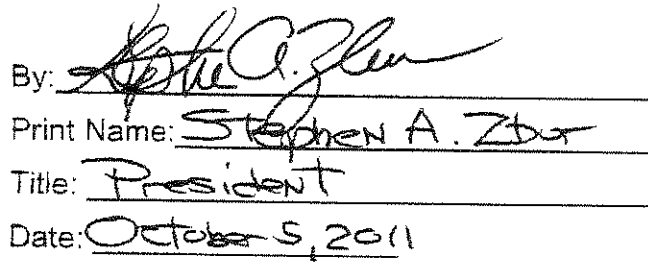 By:
Print Name: Stephen A. Zbur
Title: President
Date: October 5, 2011